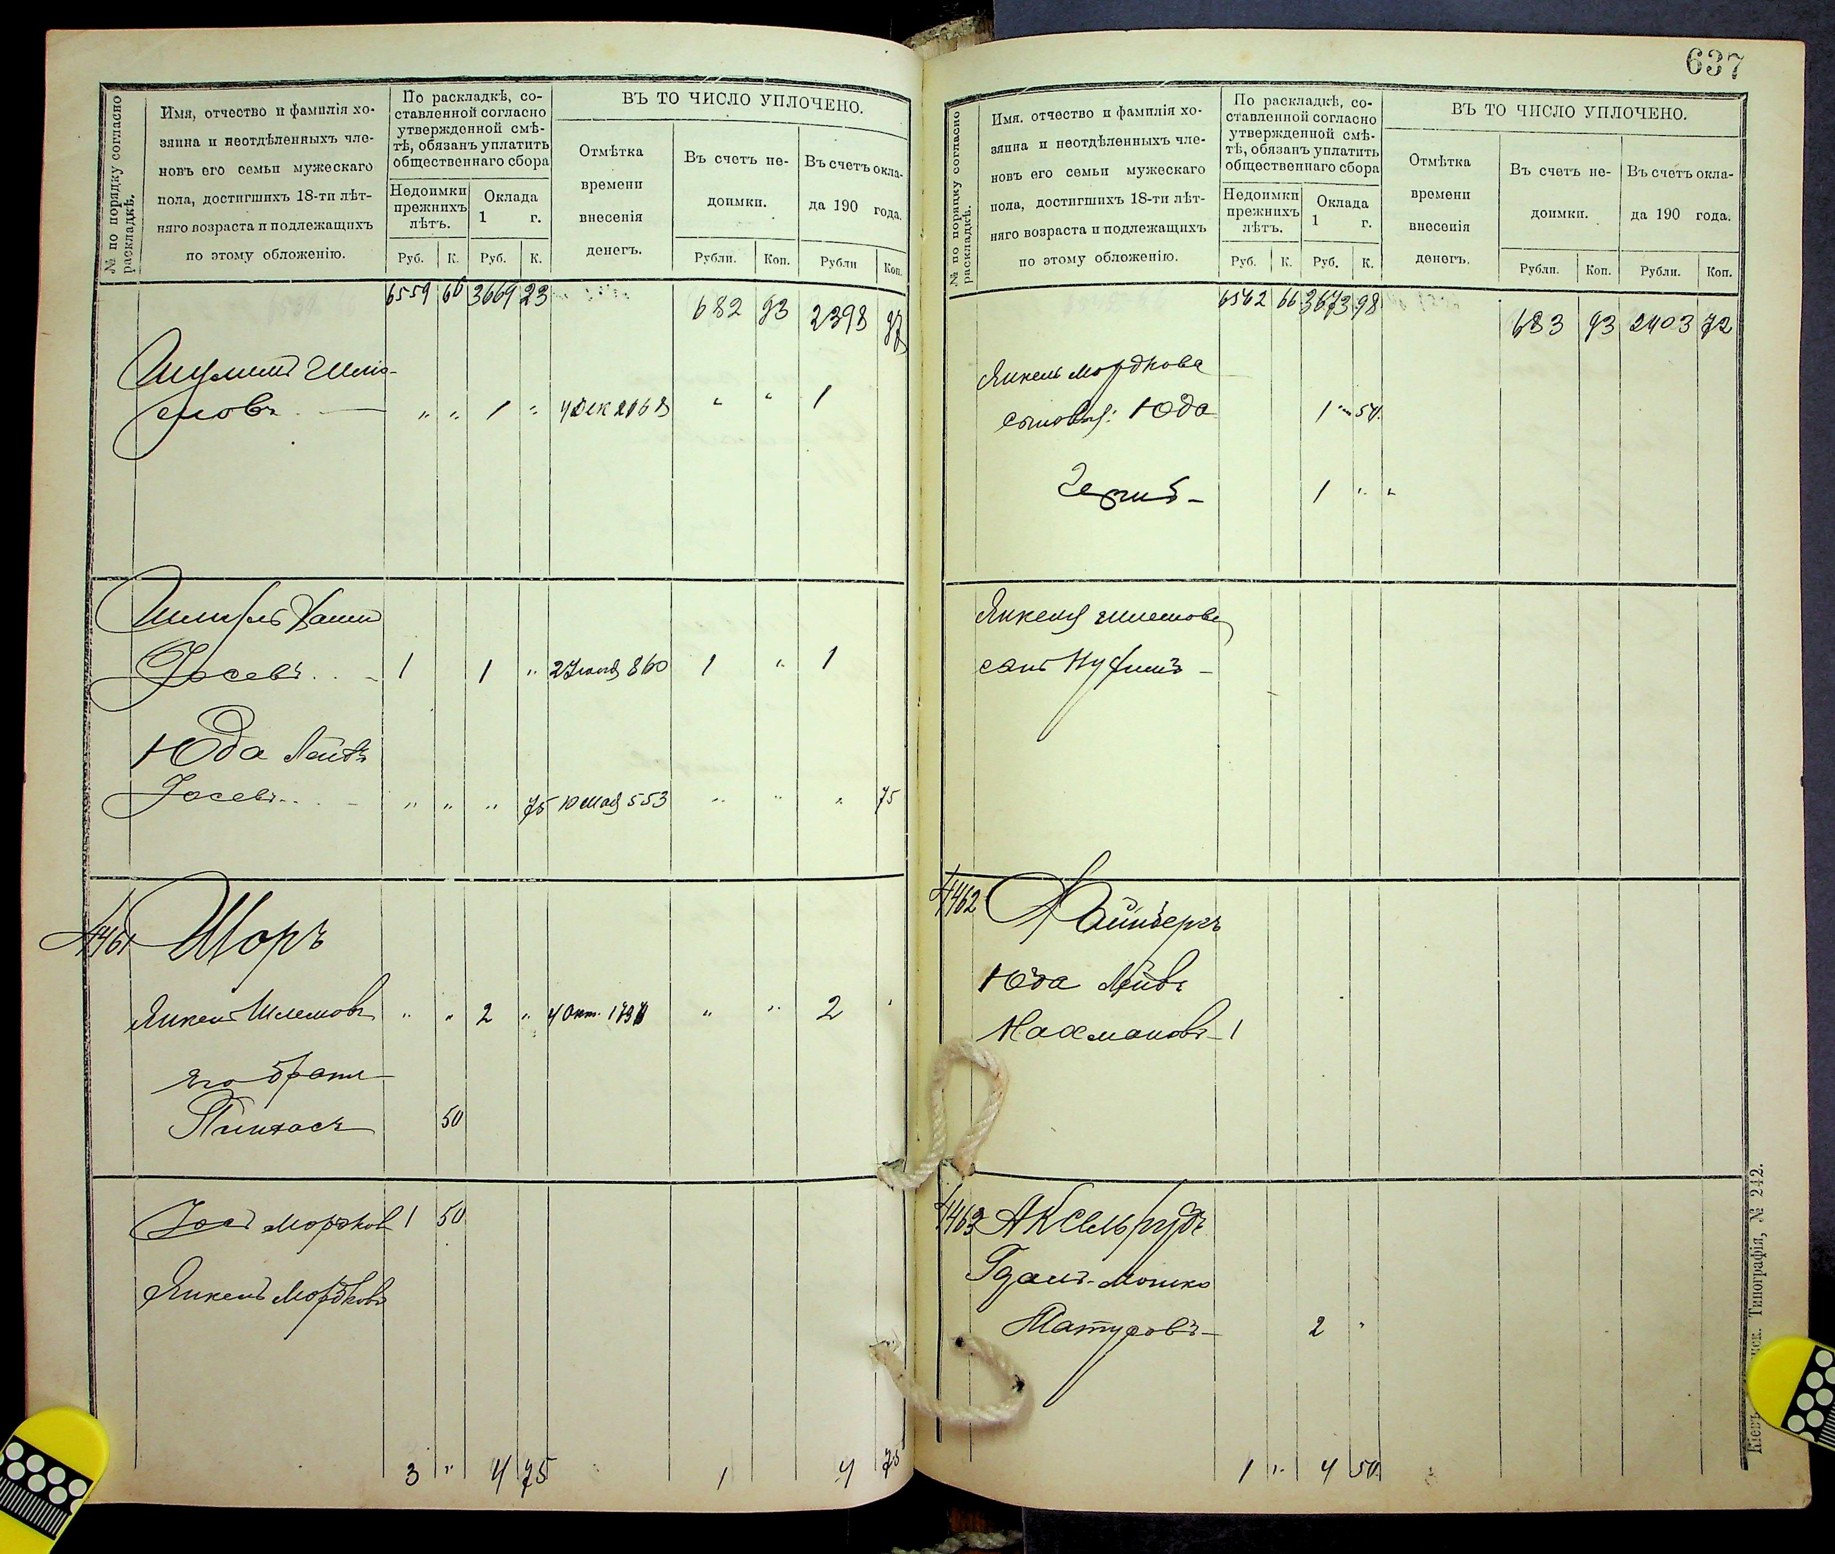 637
№ по порядку согласно раскладкѣ.
Имя, отчество и фамилія хо-
зяина и неотдѣленныхъ чле-
новъ его семьи мужескаго
пола, достигшихъ 18-ти лѣт-
няго возраста и подлежащихъ
по этому обложенію.
По раскладкѣ, со-
ставленной согласно
утвержденной смѣ-
тѣ, обязанъ уплатить
общественнаго сбора
Недоимки
прежнихъ
лѣтъ.
Оклада
1 г.
Руб. К. Руб. К.
ВЪ ТО ЧИСЛО УПЛОЧЕНО.
Отмѣтка
времени
внесенія
денегъ.
Въ счетъ не-
доимки.
Въ счетъ окла-
да 190 года.
Рубли. Коп. Рубли Коп.
6559 66 3669 23 682 93 2398 97
Шулимъ
" " 1 " 4 Дек 2168 " " 1
Іосевъ 1 1 " 860 1 " 1
Юда Лейбъ
Іосевъ " " " 75 10 мая 553 " " " 75
4461 Шоръ
Янкель Шлемовъ " " 2 " 4 Окт. " " 2 "
его братъ
Пинхасъ 50
Мордков 1 50
Янкель Мордковъ
3 " 4 75 1 4 75
№ по порядку согласно раскладкѣ.
Имя, отчество и фамилія хо-
зяина и неотдѣленныхъ чле-
новъ его семьи мужескаго
пола, достигшихъ 18-ти лѣт-
няго возраста и подлежащихъ
по этому обложенію.
По раскладкѣ, со-
ставленной согласно
утвержденной смѣ-
тѣ, обязанъ уплатить
общественнаго сбора
Недоимки
прежнихъ
лѣтъ.
Оклада
1 г.
Руб. К. Руб. К.
ВЪ ТО ЧИСЛО УПЛОЧЕНО.
Отмѣтка
времени
внесенія
денегъ.
Въ счетъ не-
доимки.
Въ счетъ окла-
да 190 года.
Рубли. Коп. Рубли. Коп.
6562 66 3673 98 683 93 2403 72
Янкель Мордкова
сыновья: Юда 1 50
1 " "
Янкеля Шлемова
сынъ
4462 Вайнбергъ
Юда Лейбъ
Нахмановъ 1
4463 Аксельрудъ
Гдаль-Мошко
Матусовъ 2 "
1 " 4 50
Типографія, № 242.